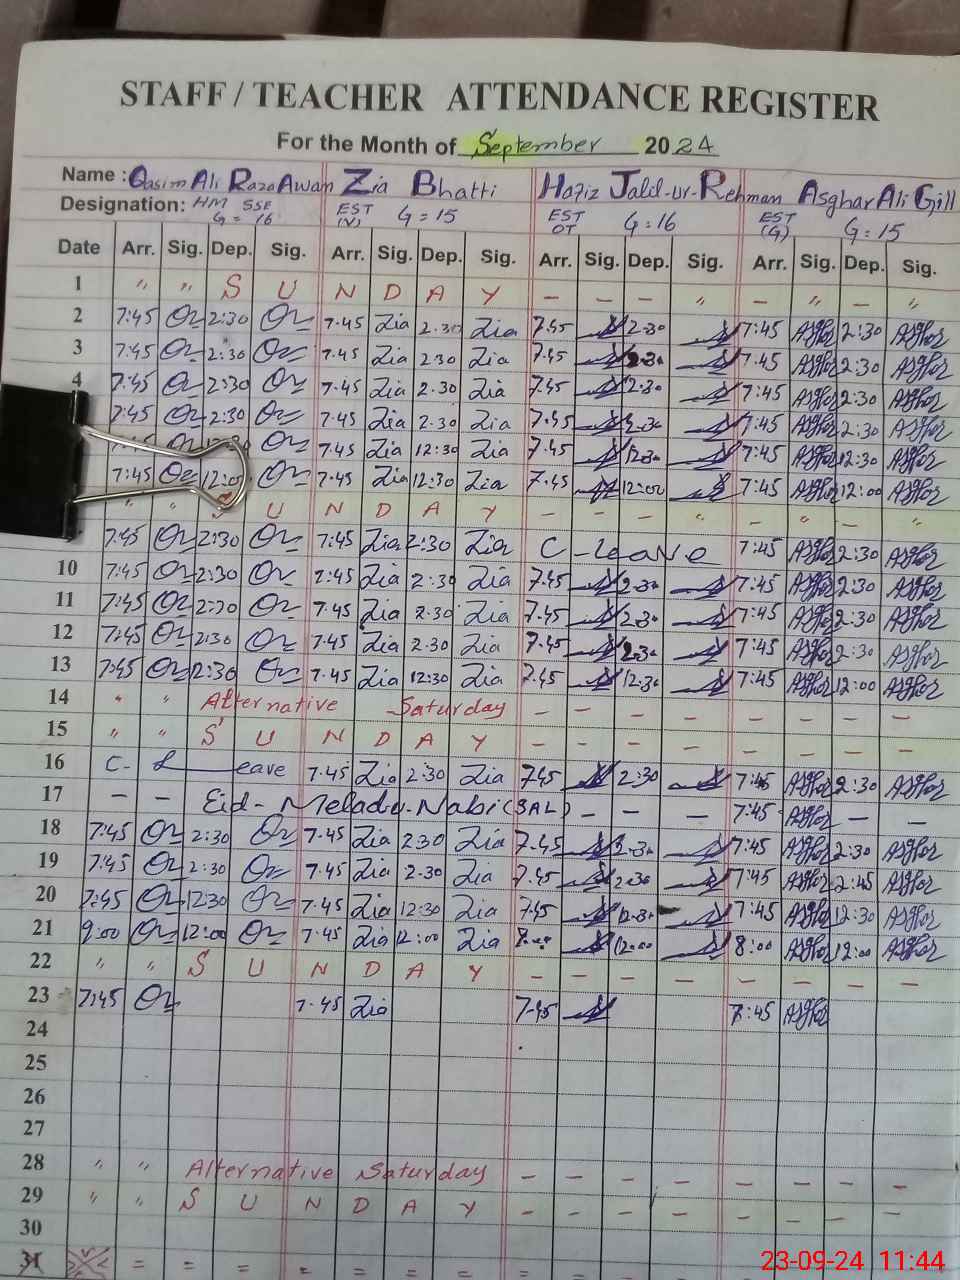 STAFF / TEACHER ATTENDANCE REGISTER
For the Month of September 2024
Name : Qasim Ali Raza Awan Zia Bhatti Hafiz Jalil-ur-Rehman Asghar Ali Gill
Designation: HM SSE G = 16 EST (V) G = 15 EST OT G = 16 EST (G) G = 15
Date Arr. Sig. Dep. Sig. Arr. Sig. Dep. Sig. Arr. Sig. Dep. Sig. Arr. Sig. Dep. Sig.
1 " " S U N D A Y — — — " — " — "
2 7:45 2:30 7.45 Zia 2.30 Zia 7.45 2.30 7:45 Asghar 2:30 Asghar
3 7:45 2:30 7.45 Zia 2.30 Zia 7.45 2.30 7:45 Asghar 2:30 Asghar
4 7:45 2:30 7.45 Zia 2.30 Zia 7.45 2.30 7:45 Asghar 2:30 Asghar
7:45 2:30 7.45 Zia 2.30 Zia 7.45 2.30 7:45 Asghar 2:30 Asghar
7.45 Zia 12:30 Zia 7.45 12.30 7:45 Asghar 12:30 Asghar
7:45 12:00 7.45 Zia 12:30 Zia 7.45 12:00 7:45 Asghar 12:00 Asghar
" " S U N D A Y — — — " — " — —
7:45 2:30 7:45 Zia 2:30 Zia C - leave 7:45 Asghar 2:30 Asghar
10 7:45 2:30 7:45 Zia 2:30 Zia 7.45 2.30 7:45 Asghar 2:30 Asghar
11 7:45 2:30 7.45 Zia 2.30 Zia 7.45 2.30 7:45 Asghar 2:30 Asghar
12 7:45 2:30 7.45 Zia 2.30 Zia 7.45 2.30 7:45 Asghar 2:30 Asghar
13 7:45 12:30 7.45 Zia 12:30 Zia 7.45 12.30 7:45 Asghar 12:00 Asghar
14 " " Alternative Saturday — — — — — — — —
15 " " S U N D A Y — — — — — — — —
16 C - Leave 7.45 Zia 2:30 Zia 7.45 2:30 7:45 Asghar 2:30 Asghar
17 — — Eid - Meladu-Nabi (SAL) — — — 7:45 Asghar — —
18 7:45 2:30 7.45 Zia 2.30 Zia 7.45 2.30 7:45 Asghar 2:30 Asghar
19 7:45 2:30 7.45 Zia 2.30 Zia 7.45 2.30 7:45 Asghar 2:45 Asghar
20 7:45 12:30 7.45 Zia 12:30 Zia 7.45 12.30 7:45 Asghar 12:30 Asghar
21 9:00 12:00 7.45 Zia 12:00 Zia 12:00 8:00 Asghar 12:00 Asghar
22 " " S U N D A Y — — — — — — — —
23 7:45 7.45 Zia 7.45 7:45 Asghar
24
25
26
27
28 " " Alternative Saturday — — — — — — — —
29 " " S U N D A Y — — — — — — — —
30
31 = = = = = = = = = = = = = = =
23-09-24 11:44